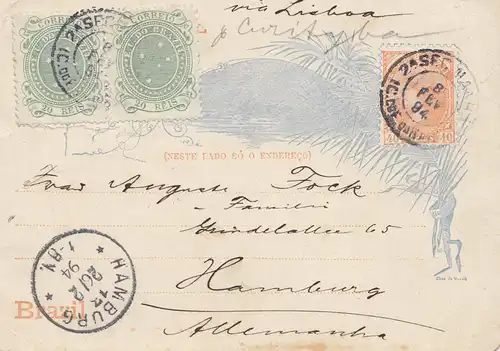 via Lisboa
p Curityba
CORREIO
E.U. DO BRAZIL
10 REIS
CORREIO
E.U. DO BRAZIL
10 REIS
2ª SEC
8
FEV
94
2ª SEC
8
FEV
94
40 40
(NESTE LADO SÓ O ENDEREÇO)
Frau Auguste Fock
- Familie
Grindelallee 65
Hamburg
Allemanha
HAMBURG
1-8 V.
26/2
94
Brazil